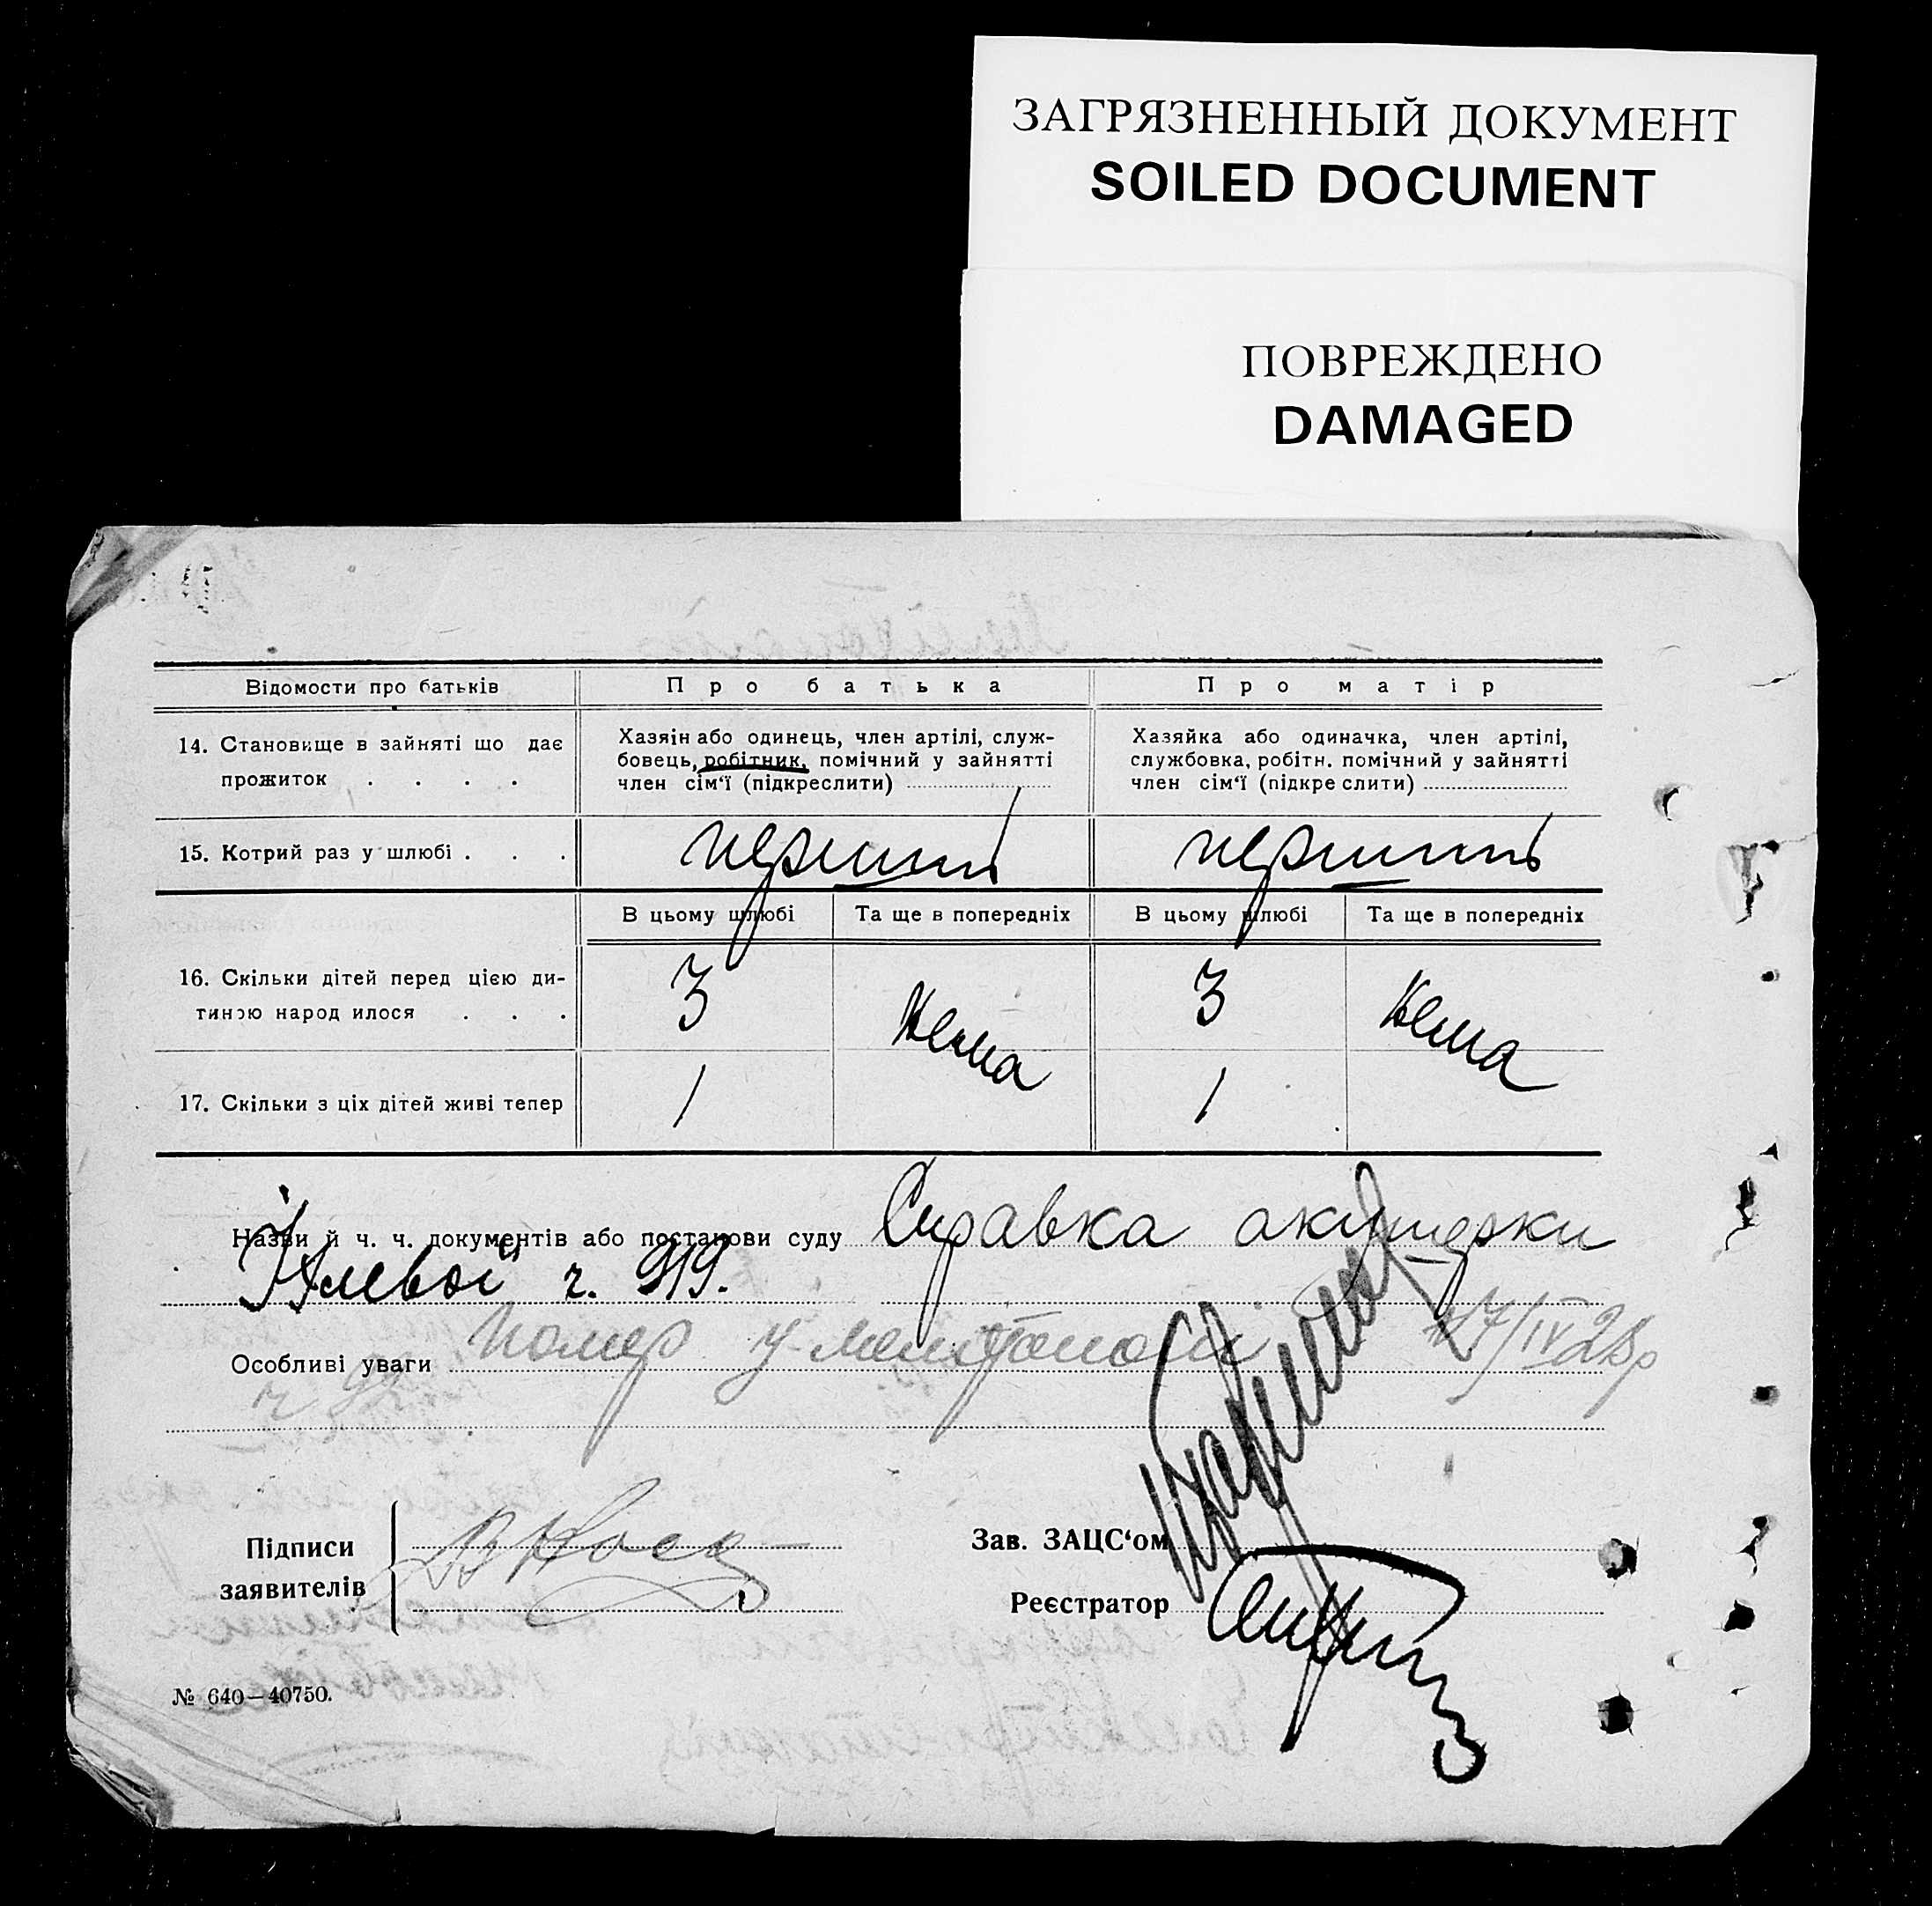 ЗАГРЯЗНЕННЫЙ ДОКУМЕНТ
SOILED DOCUMENT
ПОВРЕЖДЕНО
DAMAGED
Відомости про батьків
Про батька
Про матір
14. Становище в зайняті що дає
прожиток . . . .
Хазяін або одинець, член артілі, служ-
бовець, робітник, помічний у зайнятті
член сім‘ї (підкреслити)
Хазяйка або одиначка, член артілі,
службовка, робітн. помічний у зайнятті
член сім‘ї (підкре слити)
15. Котрий раз у шлюбі . . .
перший
перший
В цьому шлюбі
Та ще в попередніх
В цьому шлюбі
Та ще в попередніх
16. Скільки дітей перед цією ди-
тиною народ илося . . .
3
Нема
3
Нема
17. Скільки з ціх дітей живі тепер
1
1
Назви й ч. ч. документів або постанови суду Справка акушерки
ч. 919.
Особливі уваги помер у 17/IV 28р
ч 92
Підписи
заявителів
Зав. ЗАЦС‘ом
Реєстратор
№ 640—40750.